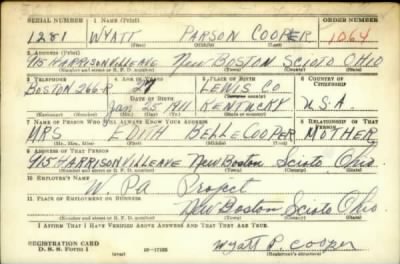 SERIAL NUMBER 1. NAME (Print) ORDER NUMBER
1281 WYATT PARSON COOPER 1064
(First) (Middle) (Last)
2. ADDRESS (Print)
915 HARRISONVILLE AVE NEW BOSTON SCIOTO OHIO
(Number and street or R. F. D. number) (Town) (County) (State)
3. TELEPHONE 4. AGE IN YEARS 5. PLACE OF BIRTH 6. COUNTRY OF CITIZENSHIP
BOSTON 266-R LEWIS CO
DATE OF BIRTH
JAN 25 1911 KENTUCKY U.S.A.
(Exchange) (Number) (Mo.) (Day) (Yr.) (State or country)
7. NAME OF PERSON WHO WILL ALWAYS KNOW YOUR ADDRESS 8. RELATIONSHIP OF THAT PERSON
MRS EDITH BELLE COOPER MOTHER
(Mr., Mrs., Miss) (First) (Middle) (Last)
9. ADDRESS OF THAT PERSON
915 HARRISONVILLE AVE New Boston Scioto Ohio
(Number and street or R. F. D. number) (Town) (County) (State)
10. EMPLOYER'S NAME
W. P.A. Project
11. PLACE OF EMPLOYMENT OR BUSINESS
New Boston Scioto Ohio
(Number and street or R. F. D. number) (Town) (County) (State)
I AFFIRM THAT I HAVE VERIFIED ABOVE ANSWERS AND THAT THEY ARE TRUE.
REGISTRATION CARD
D. S. S. Form 1 (over) Wyatt P. Cooper
(Registrant's signature)